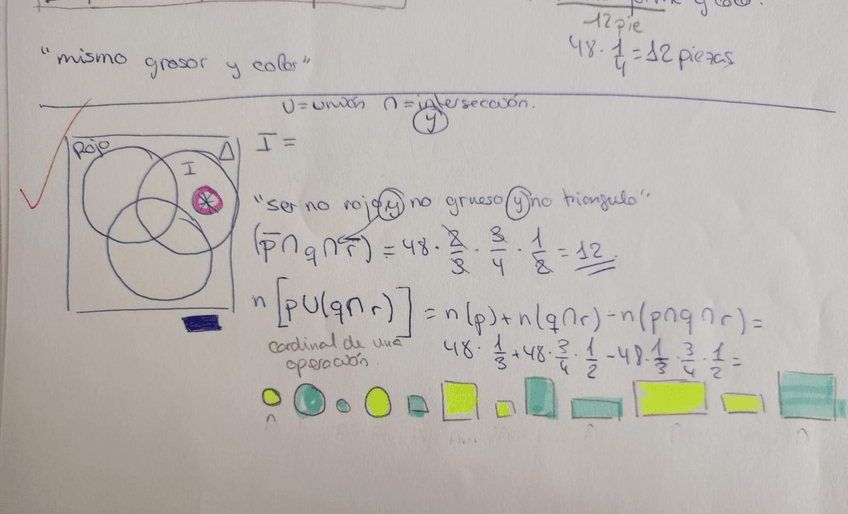 12 pie
48 · 1/4 = 12 piezas
"mismo grosor y color"
U = unión ∩ = intersección.
y
Rojo
I
Δ
I =
"ser no rojo y no grueso y no triangulo"
(p̅ ∩ q ∩ r̅) = 48 · 2/3 · 3/4 · 1/2 = 12
n [p∪(q∩r)] = n(p) + n(q∩r) - n(p∩q∩r) =
cardinal de una
operación.
48 · 1/3 + 48 · 3/4 · 1/2 - 48 · 1/3 · 3/4 · 1/2 =